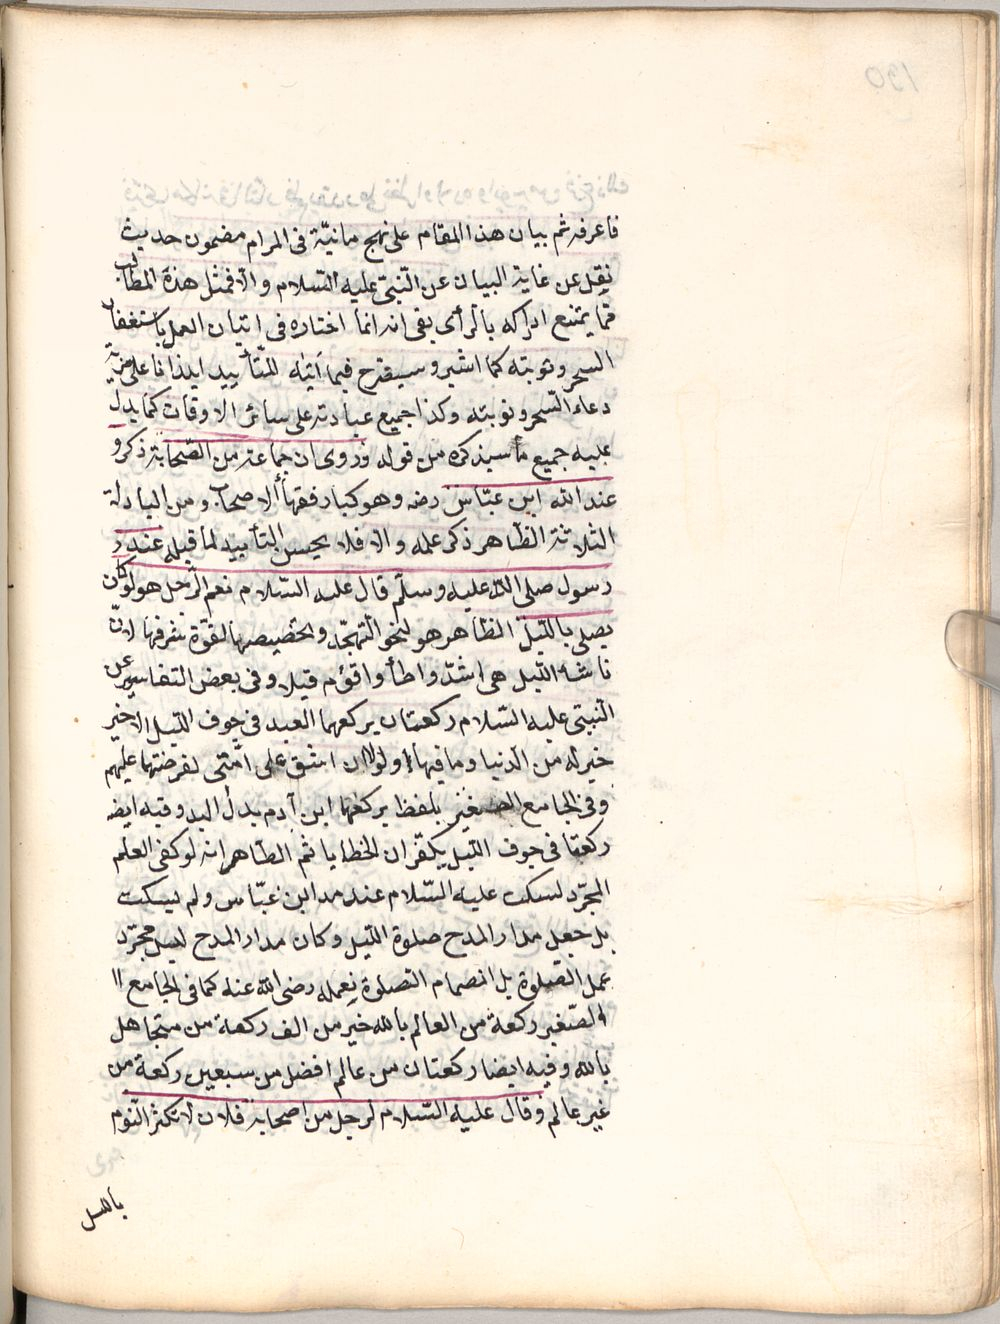 فاعرفه ثم بيان هذا المقام على نهج مانيّة فى المرام مضمون حديث
نقل عن غاية البيان عن النّبى عليه السّلام والّا فمثل هذه المطالب
ممّا يمتنع ادراكه بالرأى بقى انه انما اختاره فى اتيان العمل باستغفار
السحر ونوبته كما اشير وسيفترح فيما آتيه للتّأييد ايذانا على مزية
دعاء السّحر ونوبته وكذا جميع عبادته على سائر الاوقات كما يدل
عليه جميع ما سيذكره من قوله وروى ان جماعة من الصّحابة ذكروا
عند الله ابن عبّاس رضه وهو كبار فقهاء الاصحاب ومن العبادلة
الثلاثة الظاهر ذكر علمه والا فلا يحسن التأييد لما قبله عند ر
رسول صلى الله عليه وسلّم قال عليه السّلام نعم الرّجل هو لو كان
يصلى باللّيل الظاهر هو لنحو التهجّد وتخصيصها لقوّة شرفها لانّ
ناشئة اللّيل هى اشدّ واطأ واقوم قيلا وفى بعض التفاسير عن
النّبىّ عليه السّلام ركعتان يركعهما العبد فى جوف اللّيل الاخير
خير له من الدنيا وما فيها ولولا ان اشق على امّتى لفرضتهما عليهم
وفى الجامع الصغير بلفظ يركعهما ابن آدم بدل العبد وفيه ايضه
ركعتا فى جوف اللّيل يكفّران الخطايا ثم الظاهر انه لو كفى العلم
المجرّد لسكت عليه السّلام عند مد ابن عبّاس ولم يسكت
بل جعل مدار المدح صلوة اللّيل وكان مدار المدح ليس مجرّد
عمل الصّلوة بل انضمام الصّلوة بعمله رضى الله عنه كما فى الجامع ال
الصّغير ركعة من العالم بالله خير من الف ركعة من متجاهل
بالله وفيه ايضا ركعتان من عالم افضل من سبعين ركعة من
غير عالم وقال عليه السّلام لرجل من اصحابه فلان لا تكثر النّوم
بالليل